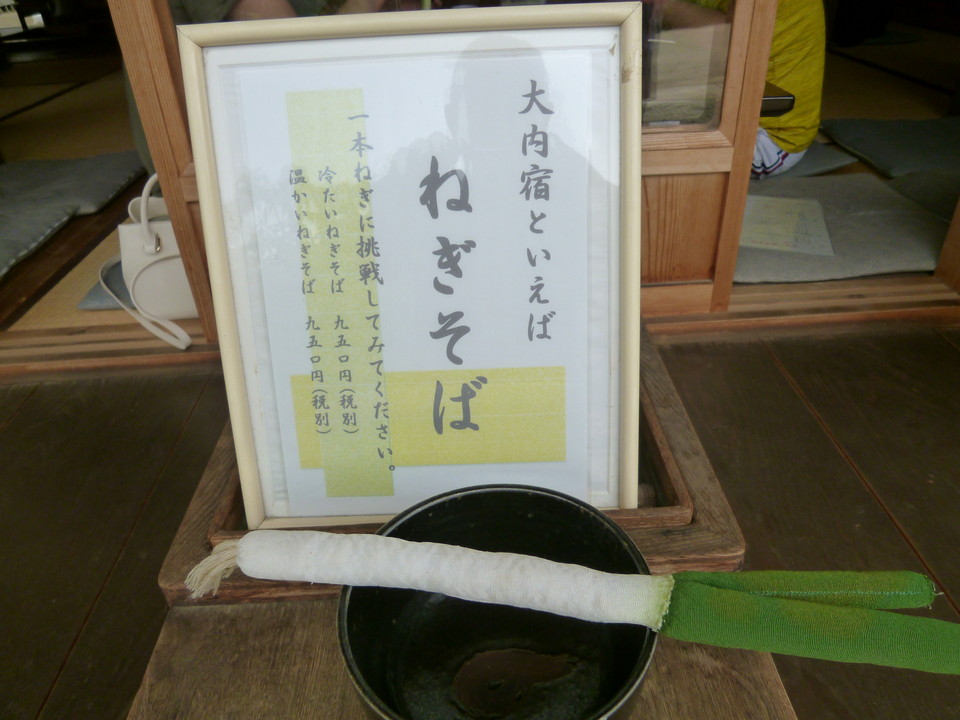 大内宿といえば
ねぎそば
一本ねぎに挑戦してみてください。
冷たいねぎそば 九五〇円(税別)
温かいねぎそば 九五〇円(税別)